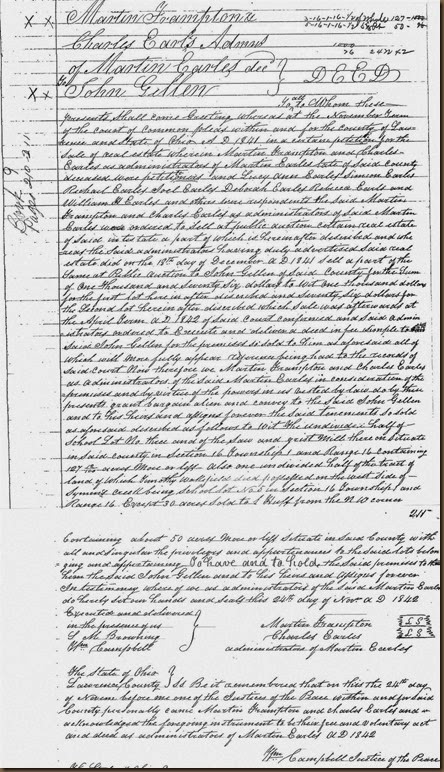 x x Martin Frampton &
Charles Earls Admrs
of Martin Earles decd } DEED
To
x x John Gellen
To all to Whom these
presents Shall come Greeting whereas at the November Term
of the court of Common pleas within and for the County of Law
rence and State of Ohio A D 1841 in a certain petition for the
Sale of real estate wherein Martin Frampton and Charles
Earles as administrators of Martin Earles late of said county
deceased were petitioners and Lucy Ann Earles Simeon Earles
Richael Earles Joel Earles Deborah Earles Rebecca Earls and
William H Earles and others were respondents the said Martin
Frampton and Charles Earles as administrators of Said Martin
Earles were ordered to Sell at public auction certain real estate
of Said intestate a part of which is hereinafter described and whe
reas the Said administrators having duly advertised Said real
estate did on the 18th day of December A D 1841 Sell a part of the
Same at Public Auction to John Gellen of Said County for the Sum
of One thousand and Seventy Six dollars to wit One thousand dollars
for the first lot here in after described and Seventy Six dollars for
the Second lot hereinafter described which Sale was afterwards at
the April Term A D 1842 of Said Court confirmed and Said admin
istrators ordered to Execute and deliver a deed in fee Simple to
Said John Gellen for the premises so Sold to him as aforesaid all of
which will more fully appear reference being had to the records of
said court Now therefore we Martin Frampton and Charles Earles
as administrators of the Said Martin Earles in consideration of the
premises and by virtue of the powers in us vested by law do by these
presents grant bargain alien and convey to the Said John Gellen
and to his heirs and assigns forever the Said tenements So Sold
as aforesaid described as follows to Wit The undivided half of
School Lot No three and of the Saw and grist Mill there on Situate
in Said county in Section 16 Township 1 and Range 16 containing
127 acres More or less Also one undivided half of the tract of
land of which Timothy Wakefield died possessed on the West Side of
Symms creek being School lot No 2 in Section 16 Township 1 and
Range 16 Except 30 acres Sold to S Huff from the N W corner
Book 9
Pages 210 & 211
215
Containing about 50 acres More or less Situate in Said County with
all and Singular the privileges and appurtenances to the Said lots belon
ging and appertaining To have and to hold the Said premises to
him the Said John Gellen and to his heirs and assigns forever
In testimony where of we as administrators of the Said Martin Earles
do hereby set our hands and Seals this 24th day of Nov. A D 1842
Executed and delivered
in the presence of us Martin Frampton {LS}
S M Browning Charles Earles {LS}
Wm Campbell administrators of Martin Earles
The State of Ohio }
Lawrence County } SS Be it remembered that on this the 24th day
of Novem before me one of the Justices of the Peace Within and for Said
County personally came Martin Frampton and Charles Earles and
acknowledged the foregoing instrument to be their free and Voluntary act
and deed as administrators of Martin Earles A D 1842
Wm Campbell Justice of the Peace